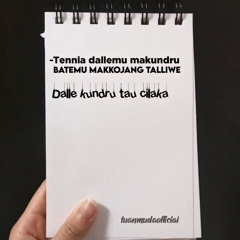 -Tennia dallemu makundru
BATEMU MAKKOJANG TALLIWE
Dalle kundru tau cilaka
tuanmudaofficial